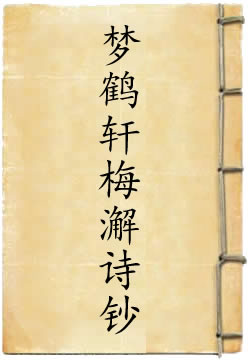 梦鹤轩梅澥诗钞